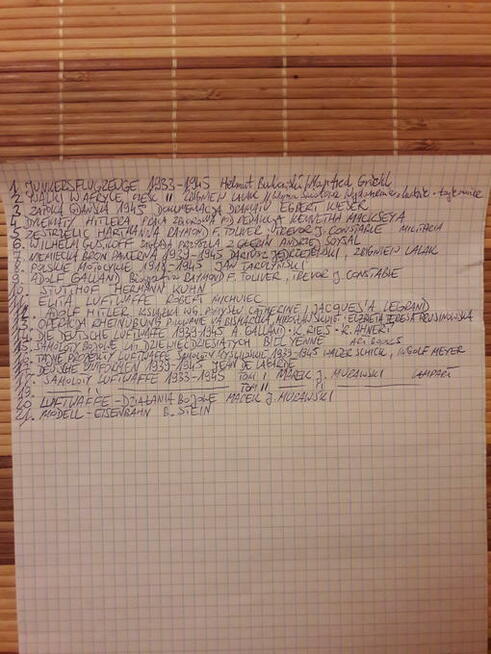 1. JUNKERSFLUGZEUGE 1933-1945 Helmut Manfred Griehl
2. WALKI W AFRYCE CZĘŚĆ II ZBIGNIEW LALAK
3. ZATOKA GDAŃSKA 1945 DOKUMENTACJA DRAMATU EGBERT KIESER
4. DYLEMATY HITLERA PRACA ZBIOROWA POD REDAKCJĄ KENNETHA MACKSEYA
5. ZESTRZELIĆ HARTMANNA RAYMOND F. TOLIVER TREVOR J. CONSTABLE MILITARIA
6. WILHELM GUSTLOFF ANDRZEJ SOYSAL
7. NIEMIECKA BROŃ PANCERNA 1939-1945 DARIUSZ JĘDRZEJEWSKI, ZBIGNIEW LALAK
8. POLSKIE MOTOCYKLE 1918-1945 JAN TARCZYŃSKI
9. ADOLF GALLAND RAYMOND F. TOLIVER, TREVOR J. CONSTABLE
10. STUTTHOF HERMANN KUHN
11. ELITA LUFTWAFFE ROBERT MICHULEC
12. ADOLF HITLER KSIĄŻKA WG. POMYSŁU CATHERINE I JACQUES'A LEGRAND
13. OPERACJA RHEINÜBUNG POLOWANIE NA BISMARCKA
14. DIE DEUTSCHE LUFTWAFFE 1939-1945 A. GALLAND · K. RIES · R. AHNERT
15. SAMOLOTY BOJOWE LAT DZIEWIĘĆDZIESIĄTYCH BILL YENNE
16. TAJNE PROJEKTY LUFTWAFFE SAMOLOTY MYŚLIWSKIE 1939-1945 WALTER SCHICK, INGOLF MEYER
17. DEUTSCHE UNIFORMEN 1933-1945 JEAN DE LAGARDE
18. SAMOLOTY LUFTWAFFE 1933-1945 TOM I MAREK J. MURAWSKI LAMPART
19. TOM II
20. LUFTWAFFE - DZIAŁANIA BOJOWE MAREK J. MURAWSKI
21. MODELL - EISENBAHN B. STEIN